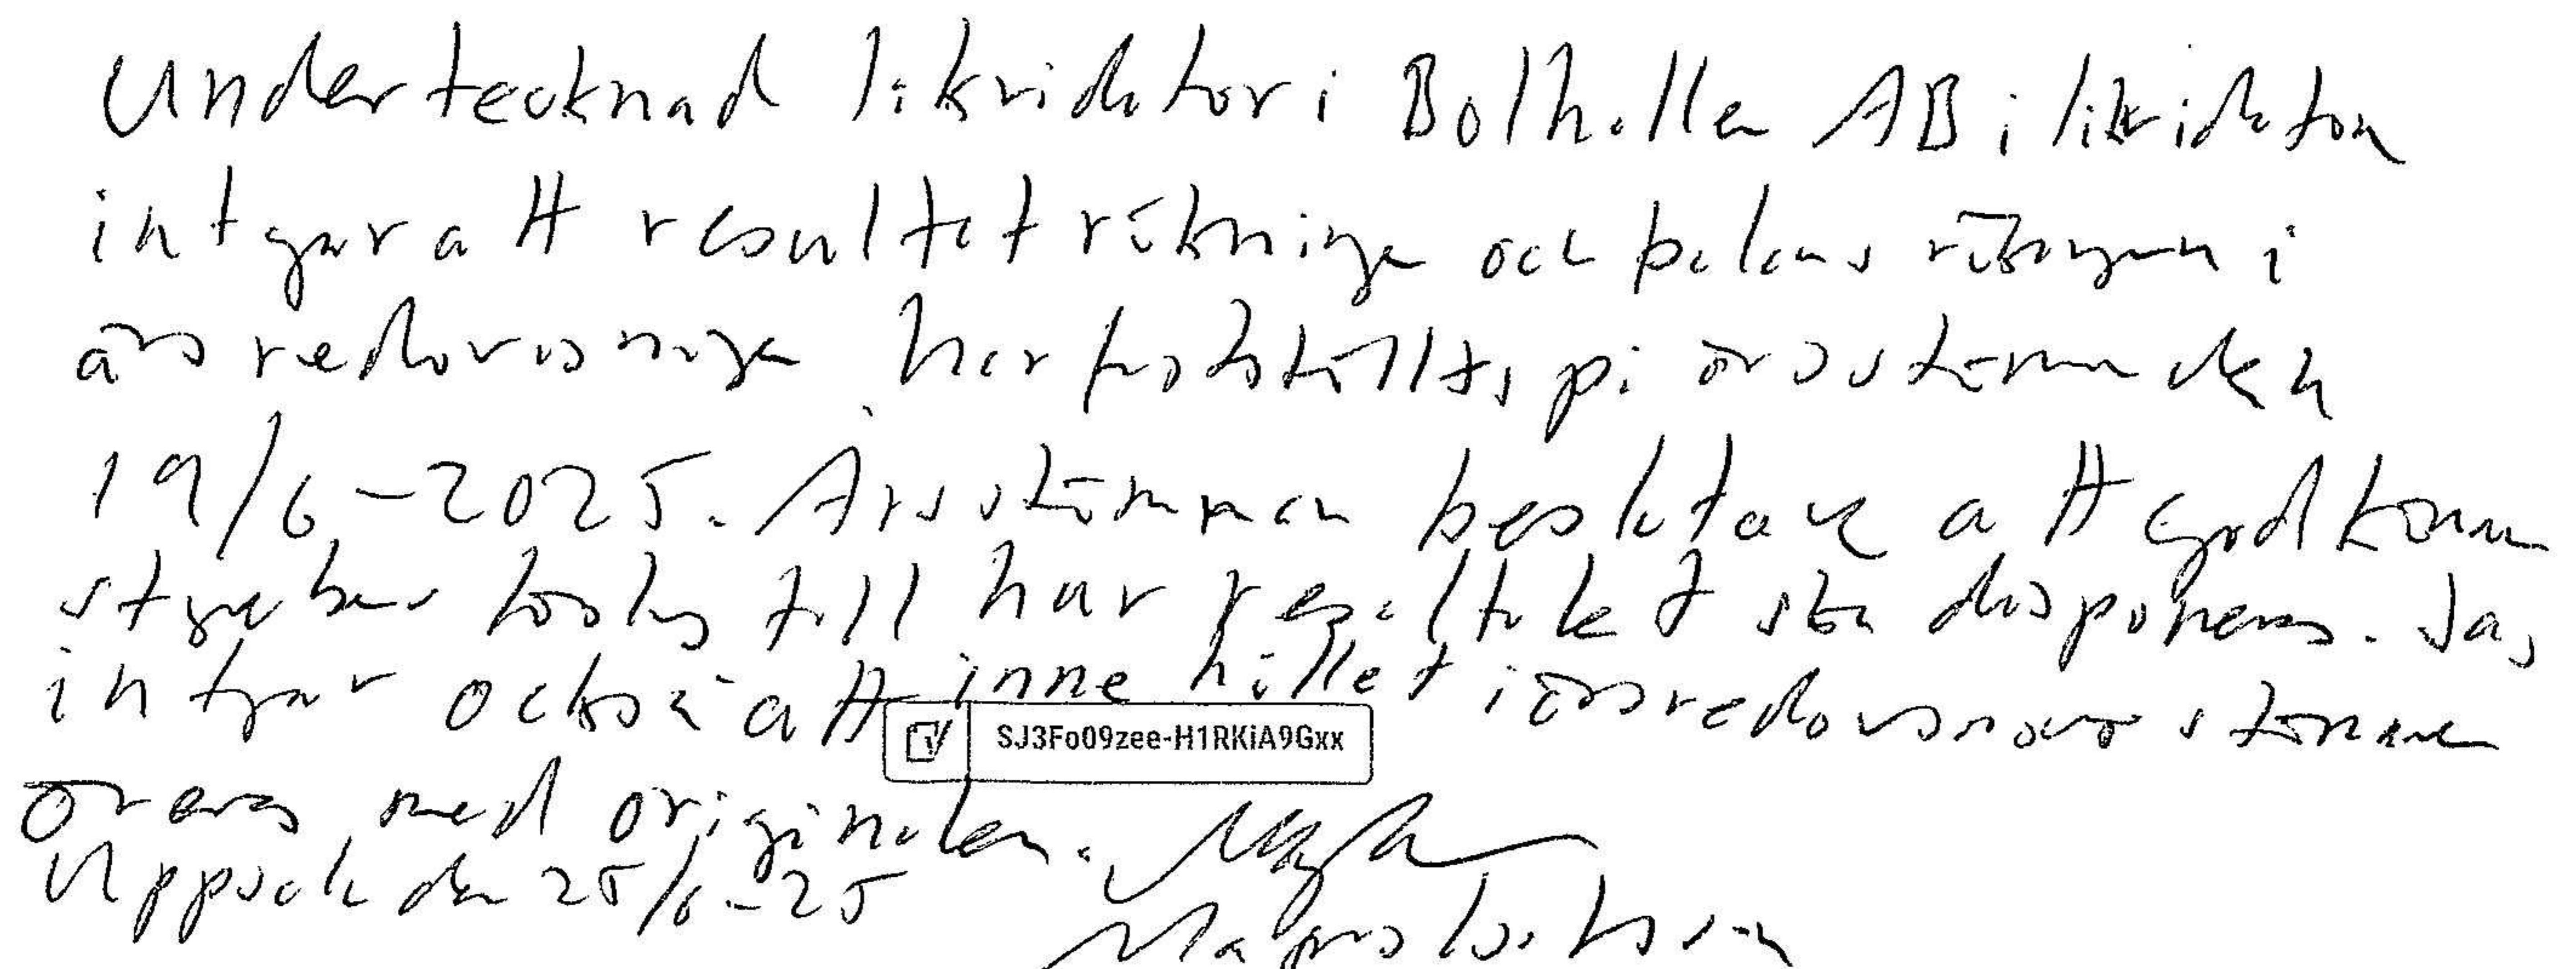 Undertecknad likvidator i Bolhallen AB i likvidation
intygar att resultaträkningen och balansräkningen i
årsredovisningen har fastställts på årsstämma den
19/6-2025. Årsstämman beslutade att godkänna
styrelsens förslag till hur resultatet ska disponeras. Jag
intygar också att innehållet i årsredovisningen stämmer
överens med originalen.
SJ3Fo09zee-H1RKiA9Gxx
Uppsala den 25/6-25
Magnus